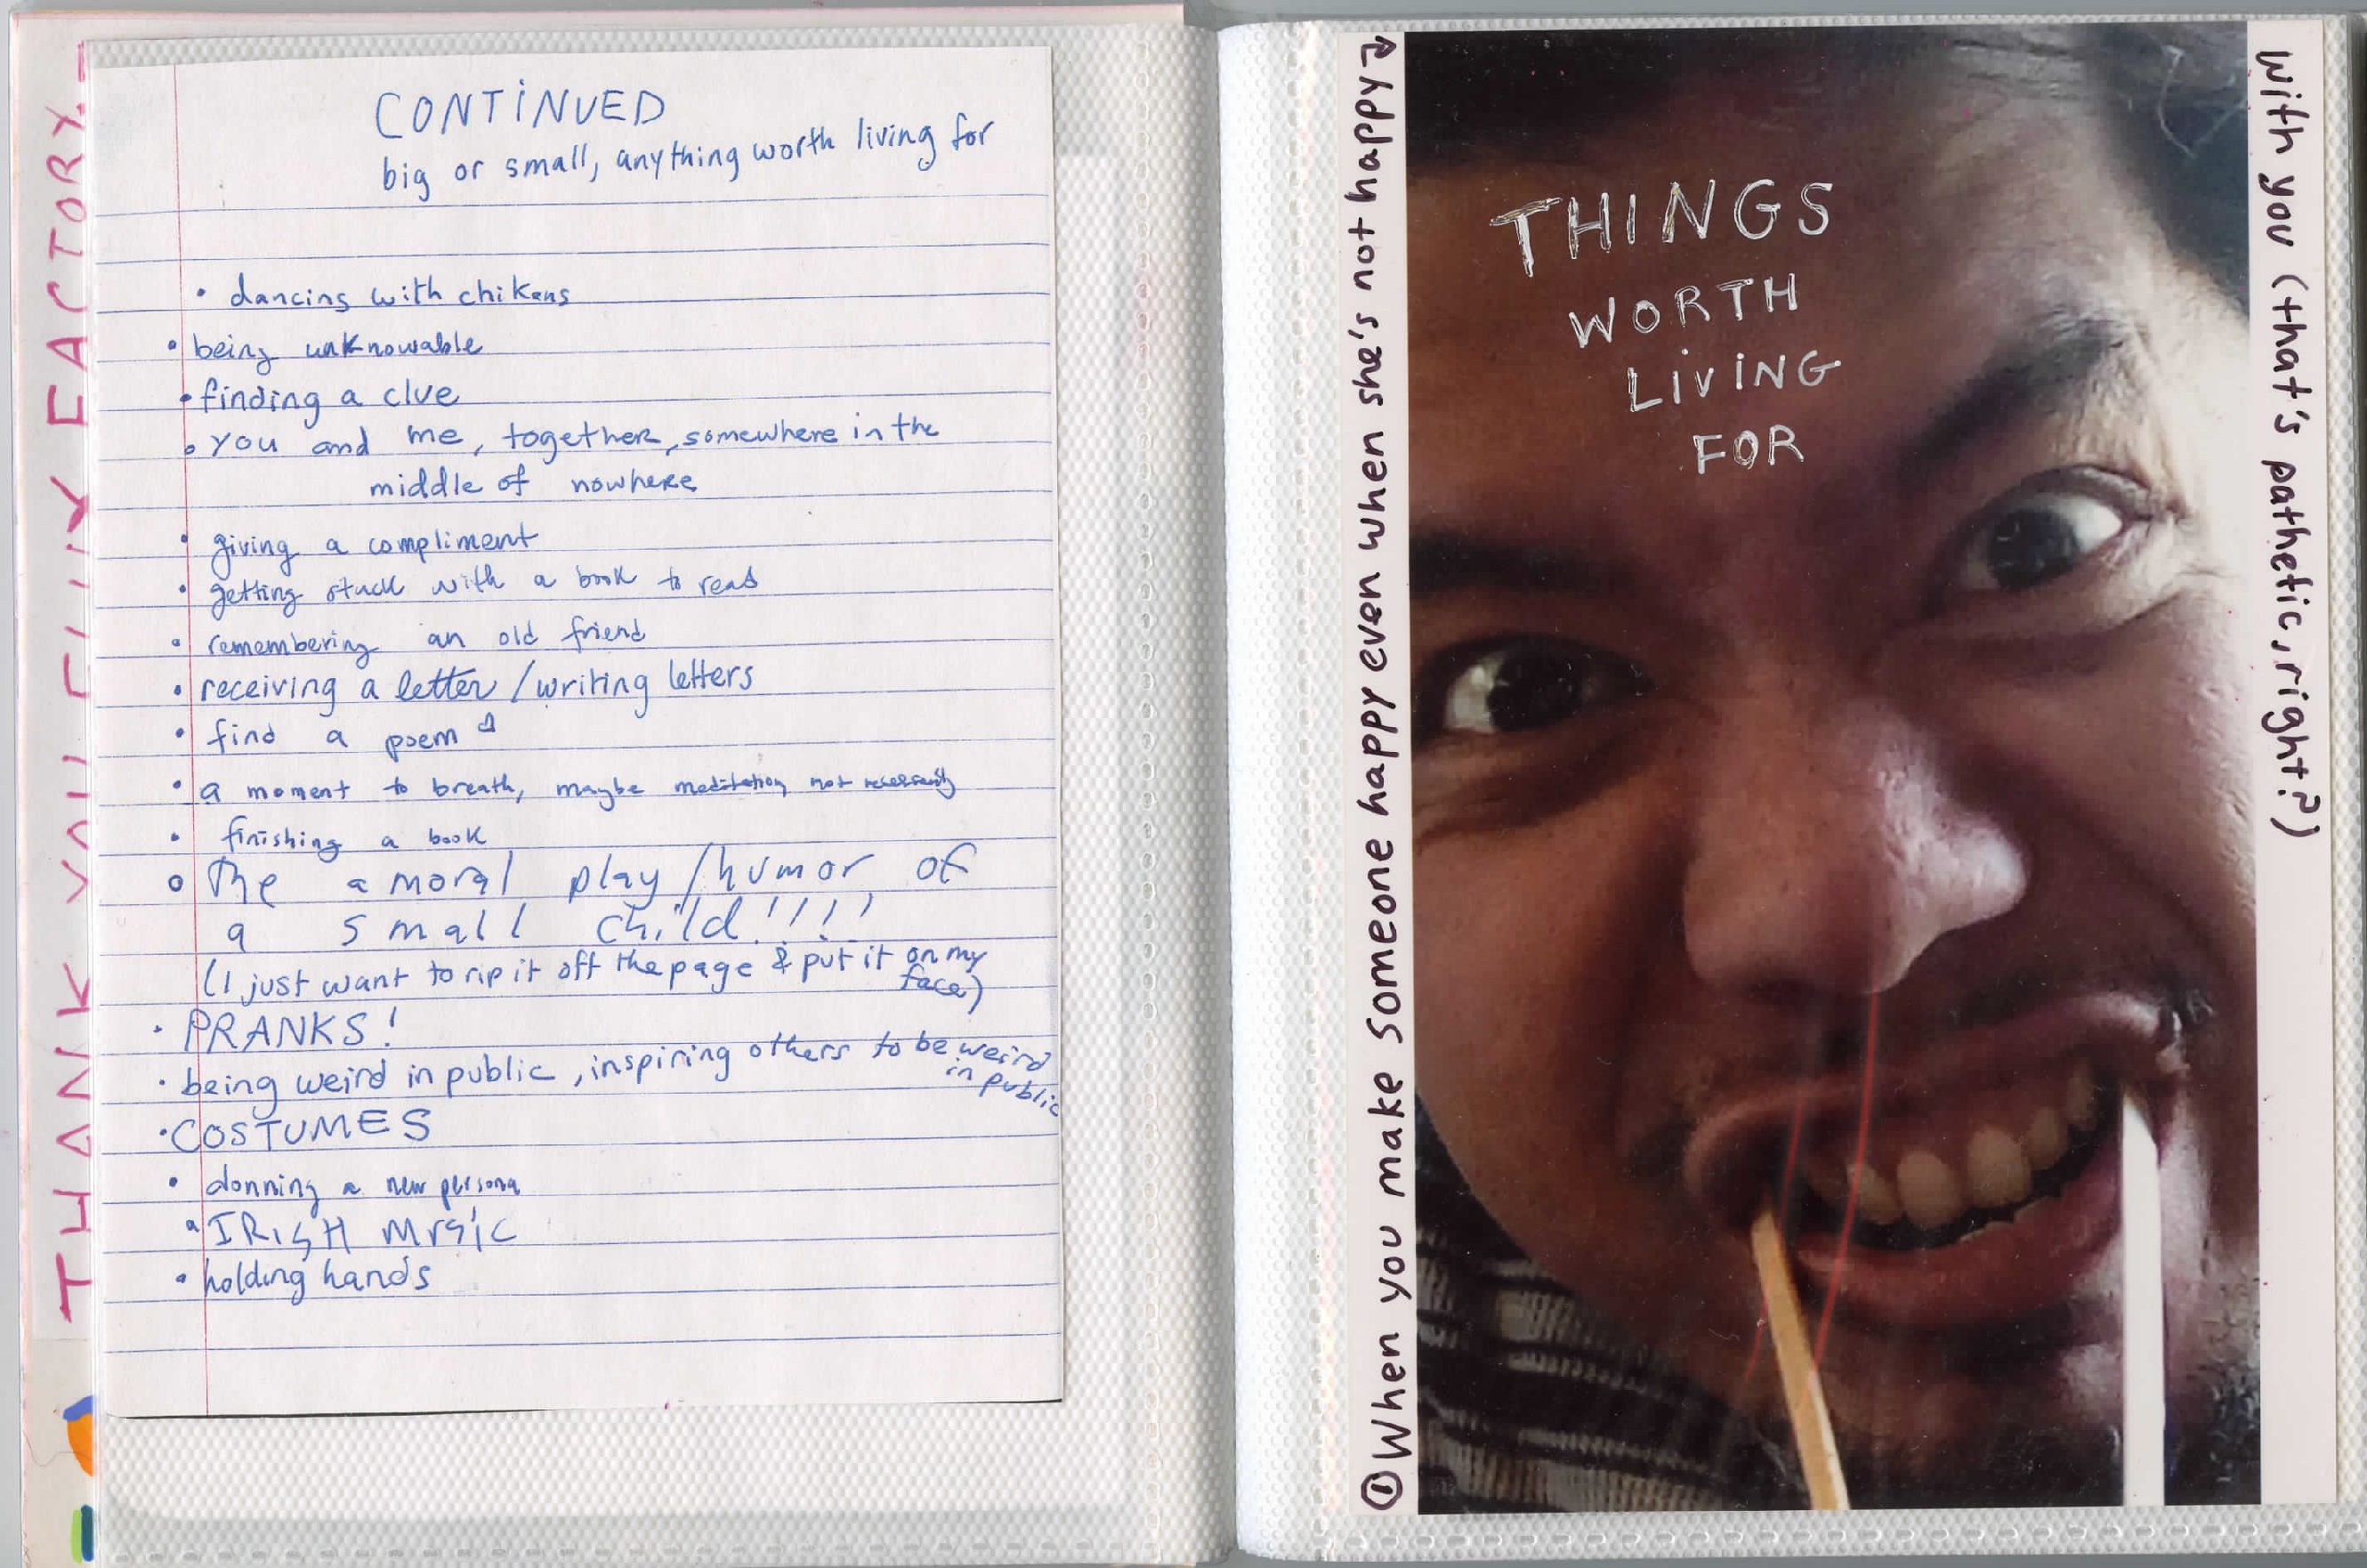 THANK YOU FLUX FACTORY.
CONTINUED
big or small, anything worth living for
• dancing with chikens
• being unknowable
• finding a clue
• you and me, together, somewhere in the
middle of nowhere
• giving a compliment
• getting stuck with a book to read
• remembering an old friend
• receiving a letter / writing letters
• find a poem
• a moment to breath, maybe meditation, not necessarily
• finishing a book
• The amoral play / humor of
a small child!!!!
(I just want to rip it off the page & put it on my
face)
• PRANKS!
• being weird in public, inspiring others to be weird
in public
• COSTUMES
• donning a new persona
• IRISH MUSIC
• holding hands
① When you make someone happy even when she's not happy
THINGS
WORTH
LIVING
FOR
With you (that's pathetic, right?)